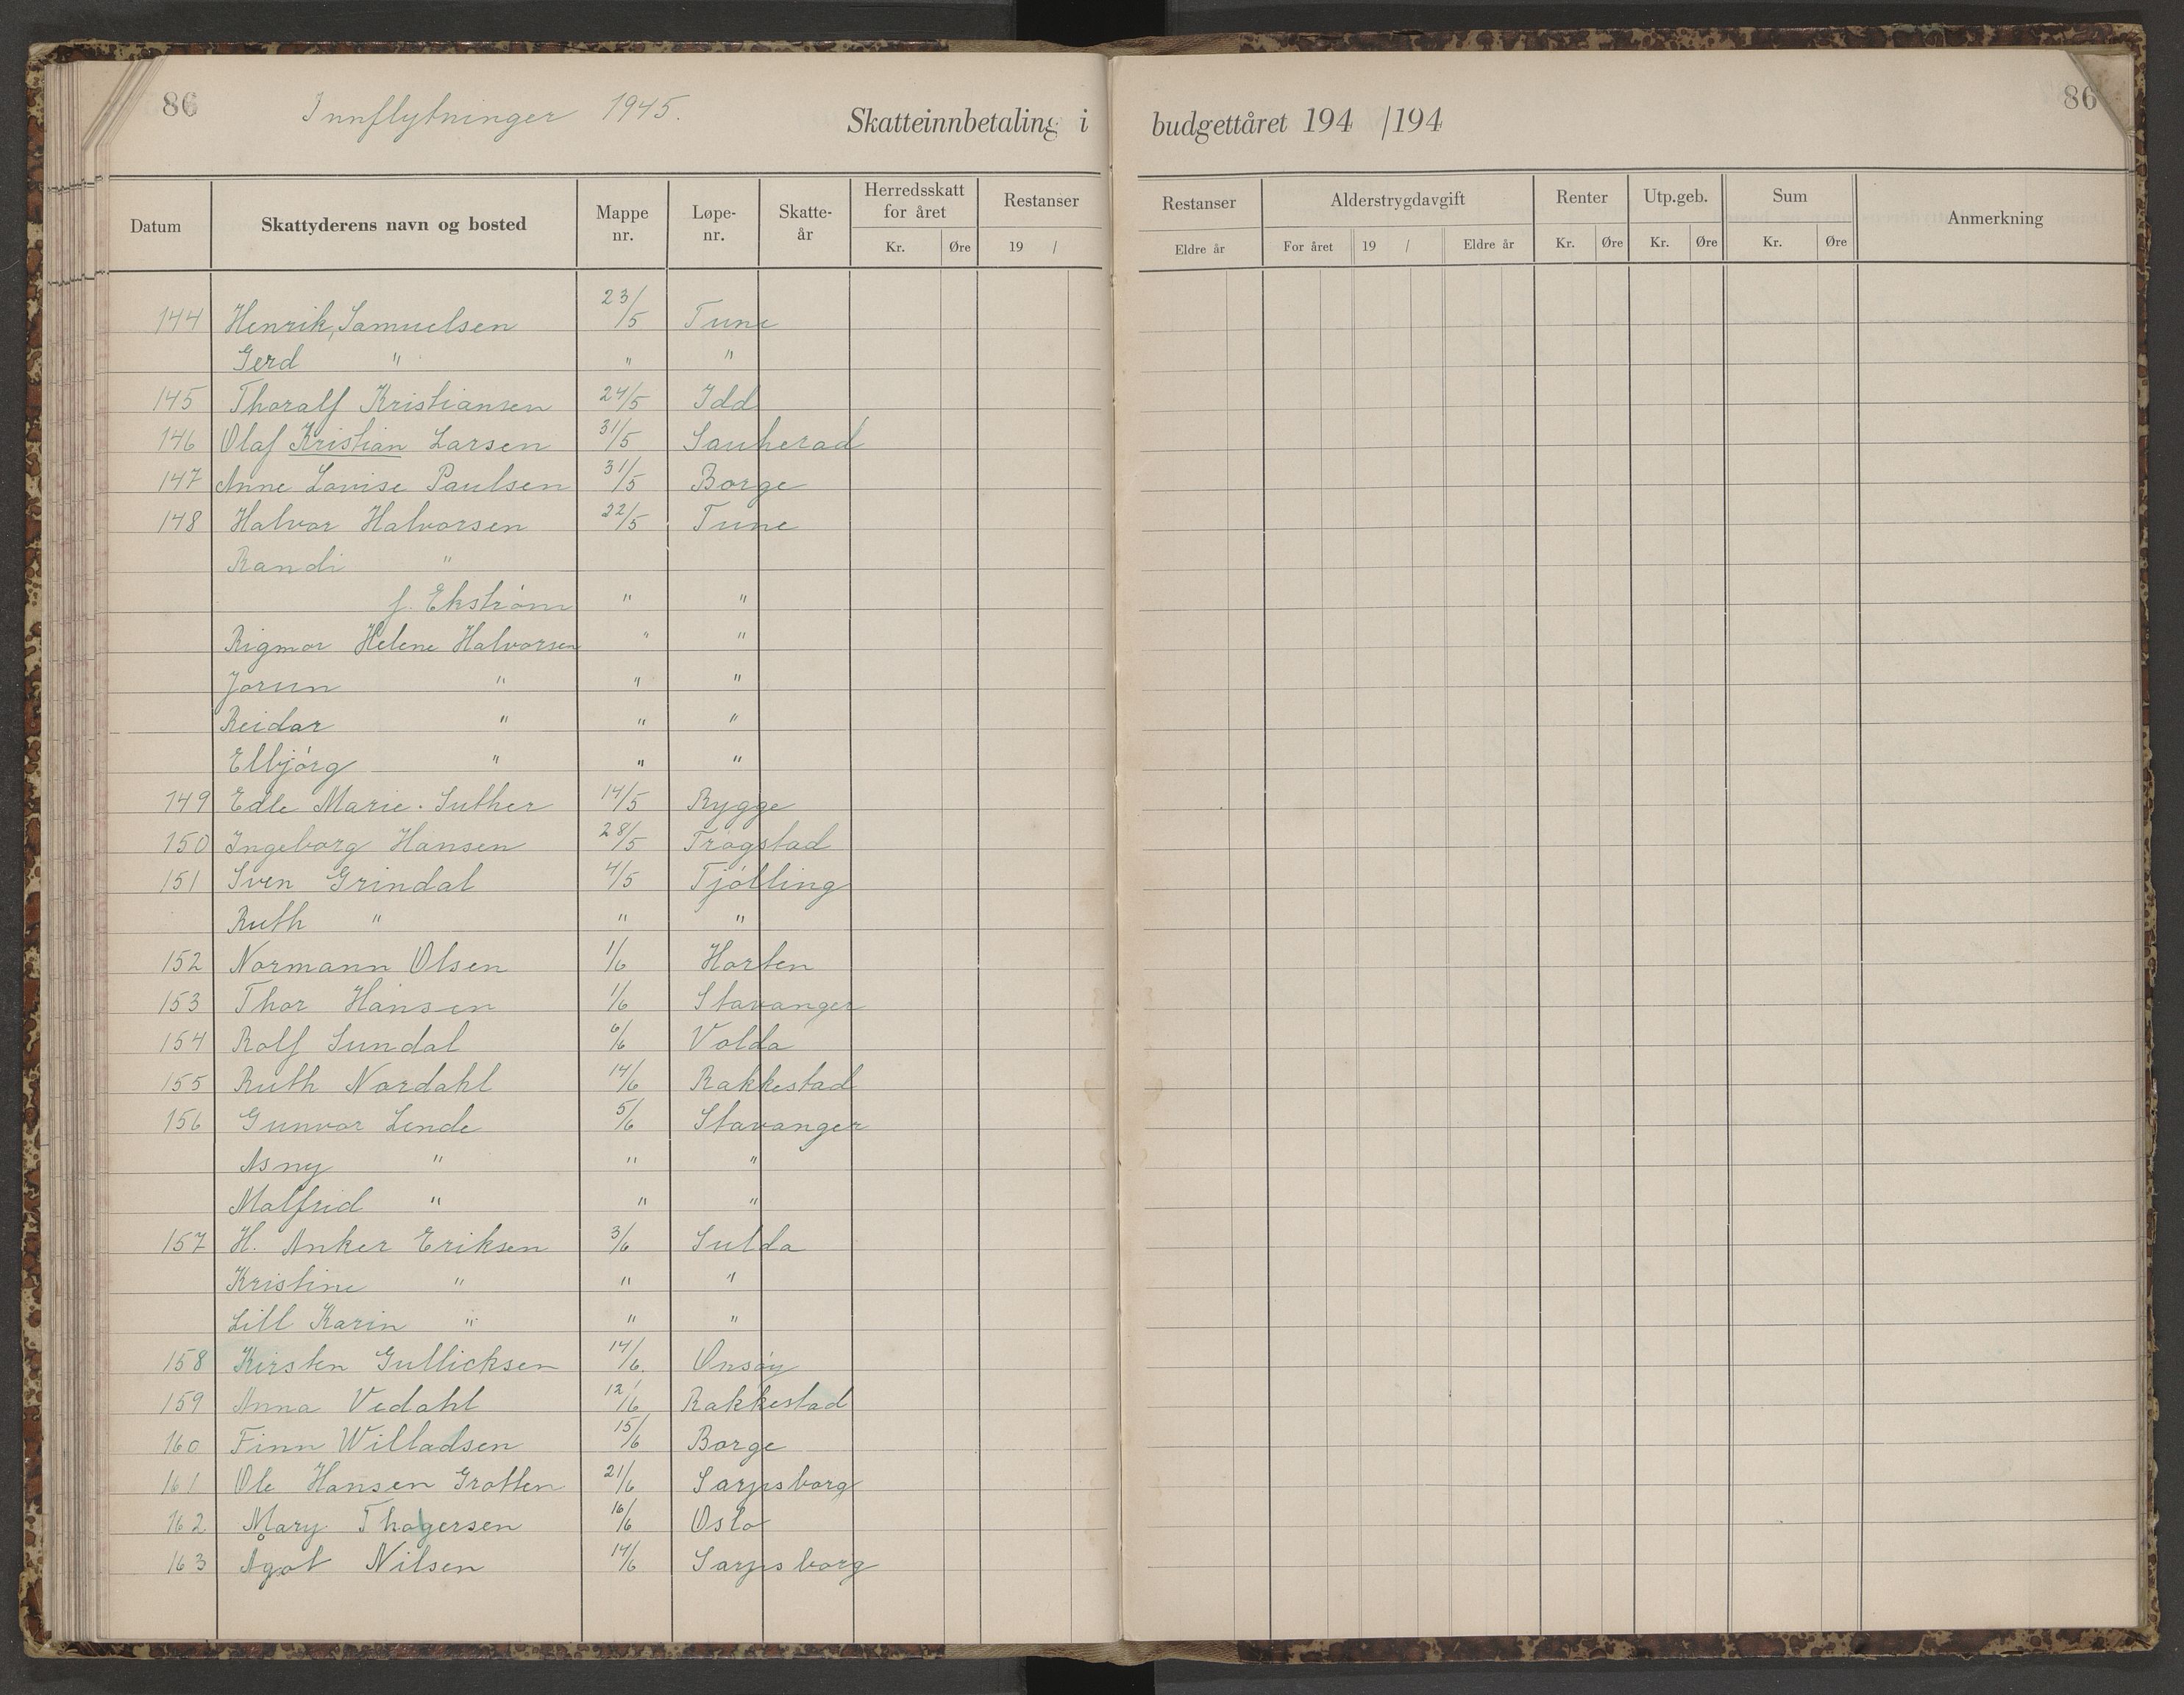 86 Innflytninger 1945. Skatteinnbetaling i budgettåret 194 /194 86
Datum Skattyderens navn og bosted Mappe nr. Løpe- nr. Skatte- år Herredsskatt for året Kr. Øre Restanser 19 / Restanser Eldre år Alderstrygdavgift For året 19 / Eldre år Renter Kr. Øre Utp.geb. Kr. Øre Sum Kr. Øre Anmerkning
144 Henrik, Samuelsen 23/5 Tune
Gerd " " "
145 Thoralf Kristiansen 24/5 Idd
146 Olaf Kristian Larsen 31/5 Sauherad
147 Anne Lovise Paulsen 31/5 Borge
148 Halvor Halvorsen 22/5 Tune
Randi "
f. Ekstrøm " "
Rigmor Helene Halvorsen " "
Jorun " " "
Reidar " " "
Elbjørg " " "
149 Edle Marie Suther 14/5 Rygge
150 Ingeborg Hansen 28/5 Trøgstad
151 Sven Grindal 4/5 Tjølling
Ruth " " "
152 Normann Olsen 1/6 Horten
153 Thor Hansen 1/6 Stavanger
154 Rolf Sundal 6/6 Volda
155 Ruth Nordahl 14/6 Rakkestad
156 Gunvor Lende 5/6 Stavanger
Asny " " "
Malfrid " " "
157 H. Anker Eriksen 3/6 Sulda
Kristine " " "
Lill Karin " " "
158 Kirsten Gullicksen 14/6. Onsøy
159 Anna Vedahl 12/6 Rakkestad
160 Finn Willadsen 15/6 Borge
161 Ole Hansen Grotten 21/6 Sarpsborg
162 Mary Thøgersen 16/6 Oslo
163 Ågot Nilsen 14/6 Sarpsborg